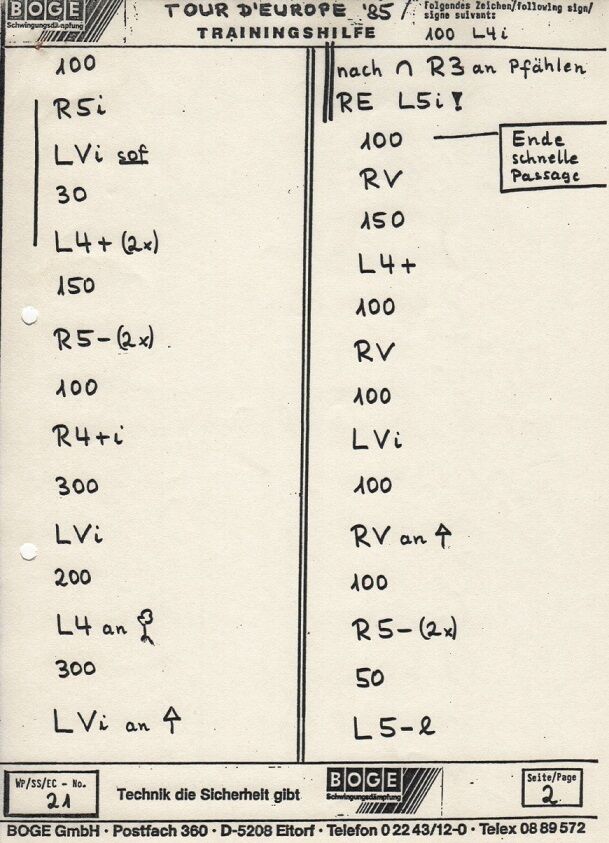 BOGE
Schwingungsdämpfung
TOUR D'EUROPE '85
TRAININGSHILFE
Folgendes Zeichen/following sign/
signe suivant:
100 L4i
100
R5i
LVi sof
30
L4+ (2x)
150
R5-(2x)
100
R4+i
300
LVi
200
L4 an
300
LVi an ↑
nach ∩ R3 an Pfählen
RE L5i!
100
Ende
schnelle
Passage
RV
150
L4+
100
RV
100
LVi
100
RV an ↑
100
R5-(2x)
50
L5-l
WP/SS/EC - No.
21
Technik die Sicherheit gibt
BOGE
Schwingungsdämpfung
Seite/Page
2
BOGE GmbH · Postfach 360 · D-5208 Eitorf · Telefon 0 22 43/12-0 · Telex 08 89 572